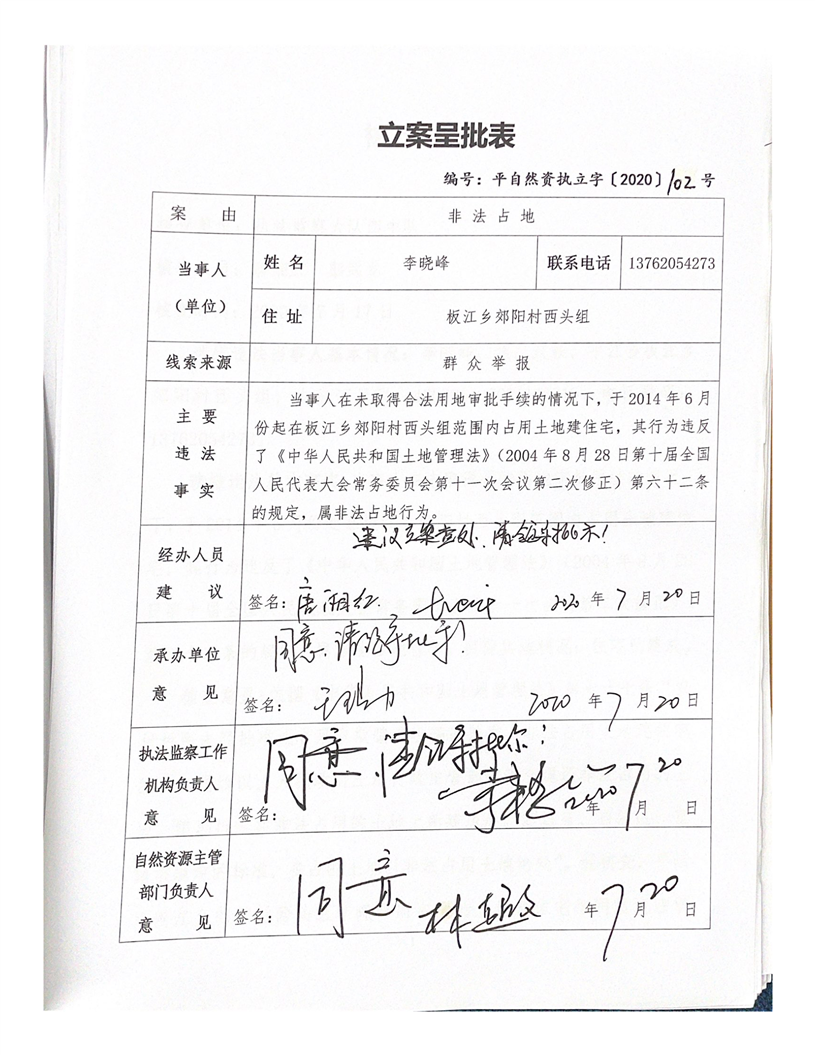 立案呈批表
编号：平自然资执立字〔2020〕102号
案 由 非法占地
当事人（单位） 姓名 李晓峰 联系电话 13762054273
住址 板江乡郊阳村西头组
线索来源 群众举报
主要违法事实
当事人在未取得合法用地审批手续的情况下，于2014年6月
份起在板江乡郊阳村西头组范围内占用土地建住宅，其行为违反
了《中华人民共和国土地管理法》（2004年8月28日第十届全国
人民代表大会常务委员会第十一次会议第二次修正）第六十二条
的规定，属非法占地行为。
经办人员建议
建议立案查处，请领导批示！
签名： 2020年7月20日
承办单位意见
同意，请领导批示！
签名： 2020年7月20日
执法监察工作机构负责人意见
同意，请领导批示！
签名： 2020年7月20日
自然资源主管部门负责人意见
同意
签名： 年7月20日